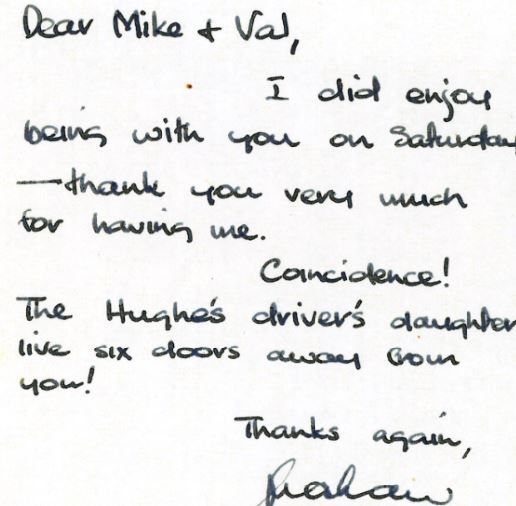 Dear Mike + Val,
I did enjoy
being with you on Saturday
—thank you very much
for having me.
Coincidence!
The Hughe's driver's daughter
live six doors away from
you!
Thanks again,
Graham